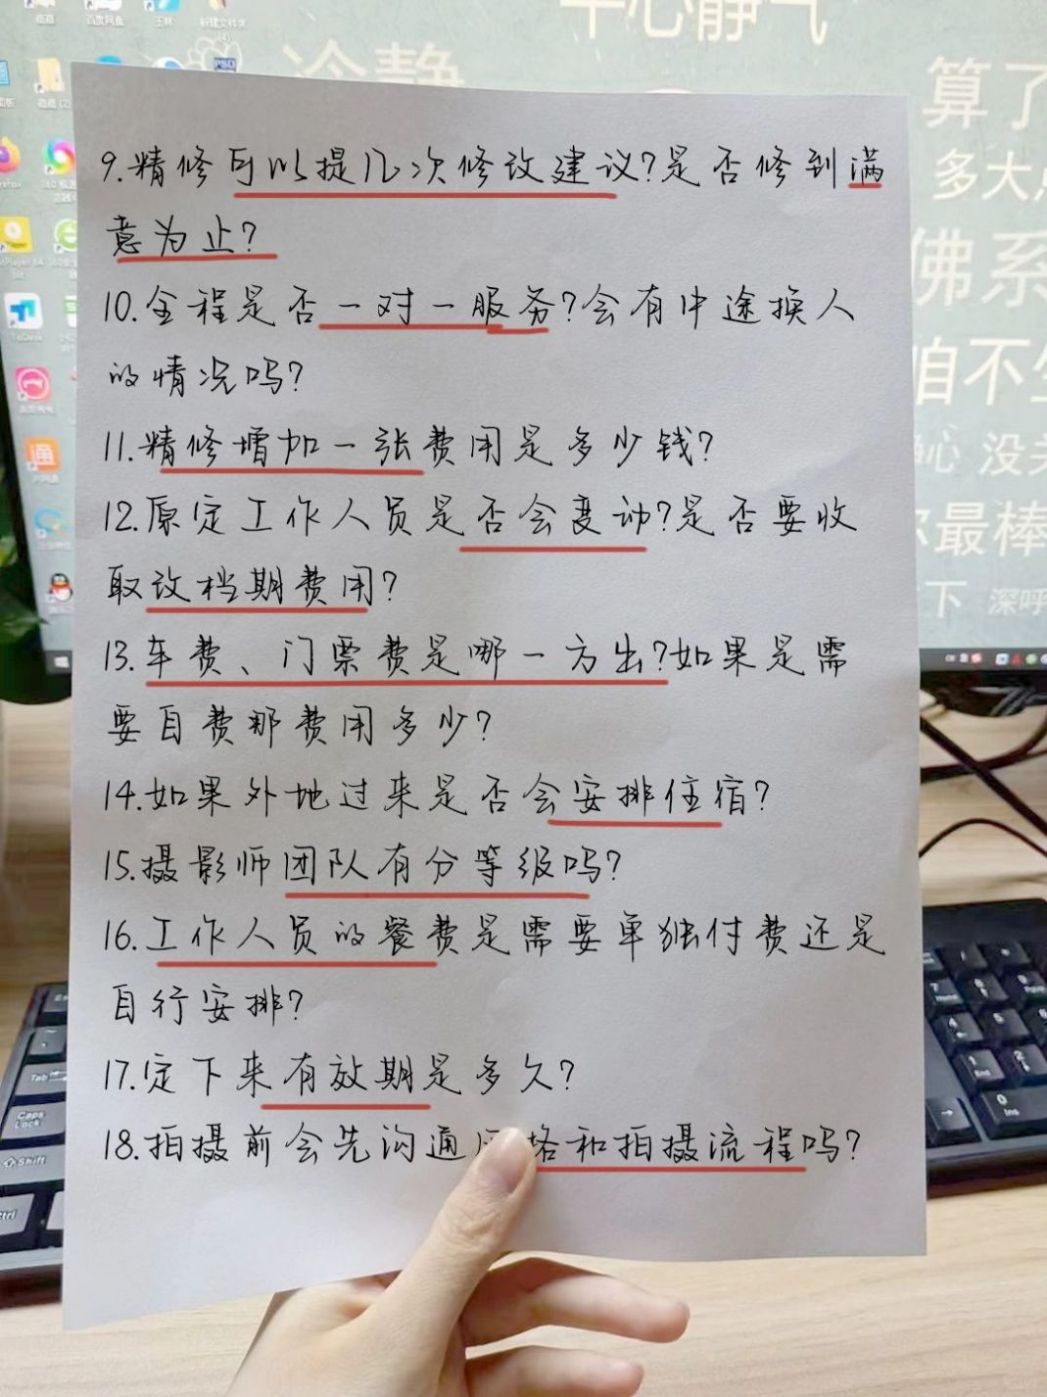 平心静气
冷静
算了
多大点
佛系
咱不生
静心 没关
你最棒
下 深呼
9.精修可以提几次修改建议?是否修到满
意为止?
10.全程是否一对一服务?会有中途换人
的情况吗?
11.精修增加一张费用是多少钱?
12.原定工作人员是否会变动?是否要收
取改档期费用?
13.车费、门票费是哪一方出?如果是需
要自费那费用多少?
14.如果外地过来是否会安排住宿?
15.摄影师团队有分等级吗?
16.工作人员的餐费是需要单独付费还是
自行安排?
17.定下来有效期是多久?
18.拍摄前会先沟通风格和拍摄流程吗?
Tab
Caps
Lock
Shift
Ctrl
7
8
4
5
1
2
0
Ins